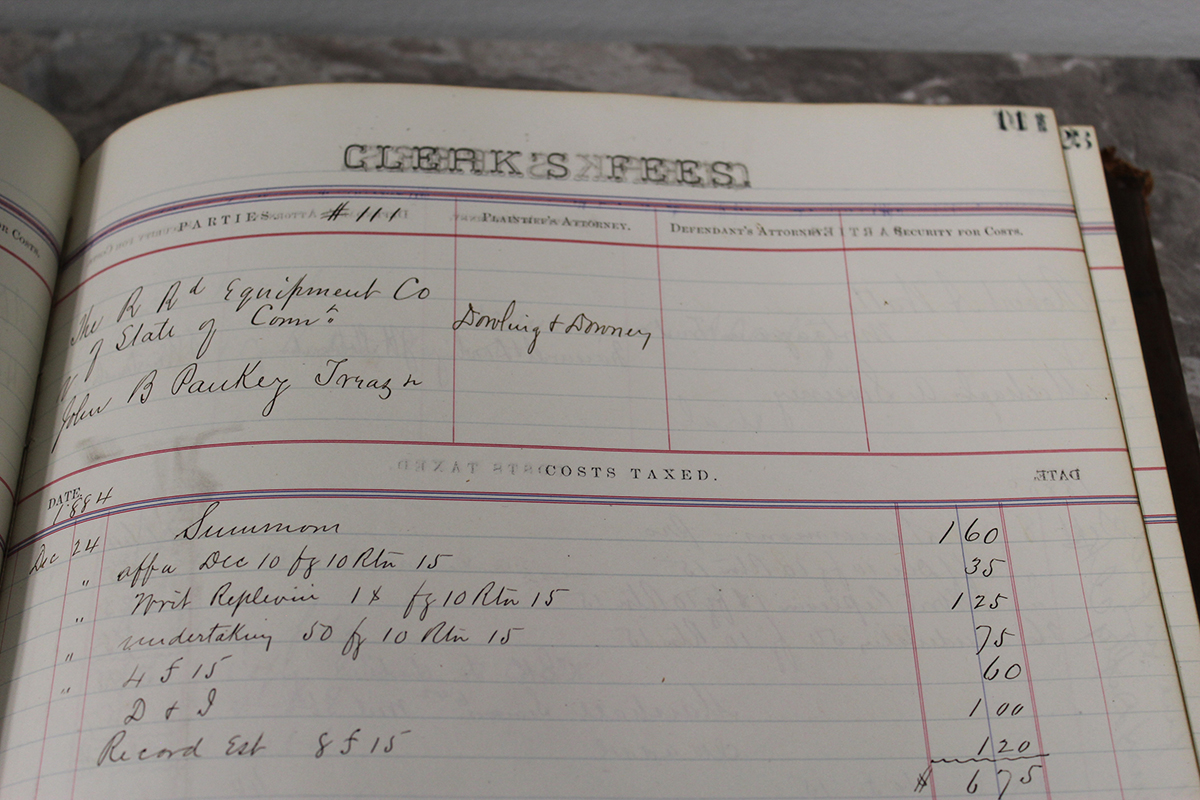 111
25
CLERK'S FEES.
R COSTS.
PARTIES. # 111 PLAINTIFF'S ATTORNEY. DEFENDANT'S ATTORNEY. SECURITY FOR COSTS.
The R Rd Equipment Co
of State of Connt.
Dowling & Downey
V
John B Pankey Treasr
COSTS TAXED.
DATE
1884
Dec 24 Summons 1 60
" affa Dec 10 fg 10 Rtn 15 35
" Writ Replevin 1 X fg 10 Rtn 15 1 25
" undertaking 50 fg 10 Rtn 15 75
" 4 f 15 60
D & I 1 00
Record Est 8 f 15 1 20
$ 6 75